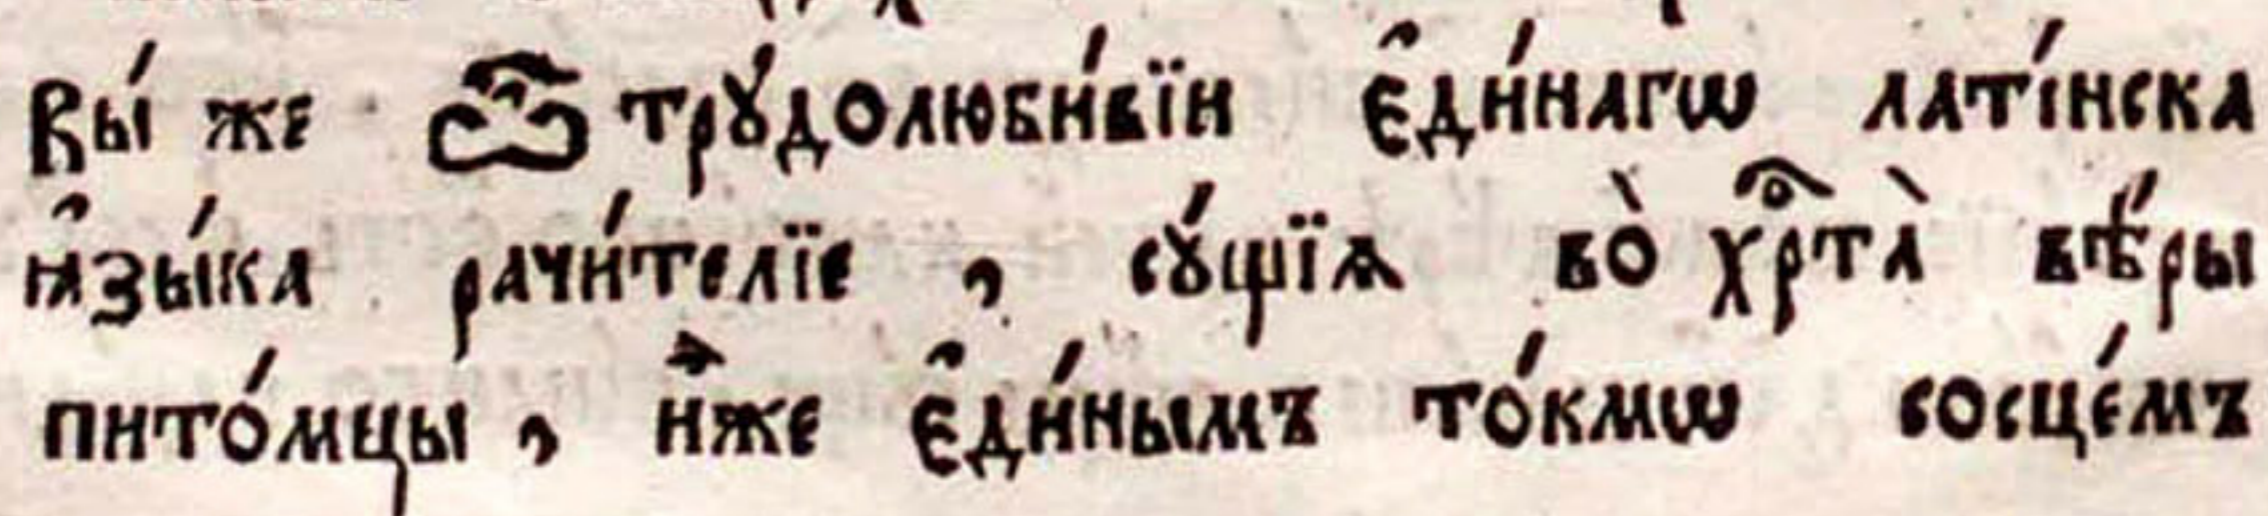 Вы́ же ѽ трꙋ́долюби́вїи є҆ди́нагѡ латі́нска
ꙗ҆зы́ка рачи́телїе , сꙋ́щїѧ во̀ хрⷭ҇та̀ вѣ́ры
пито́мцы , и҆̀же є҆ди́нымъ то́кмѡ сосце́мъ